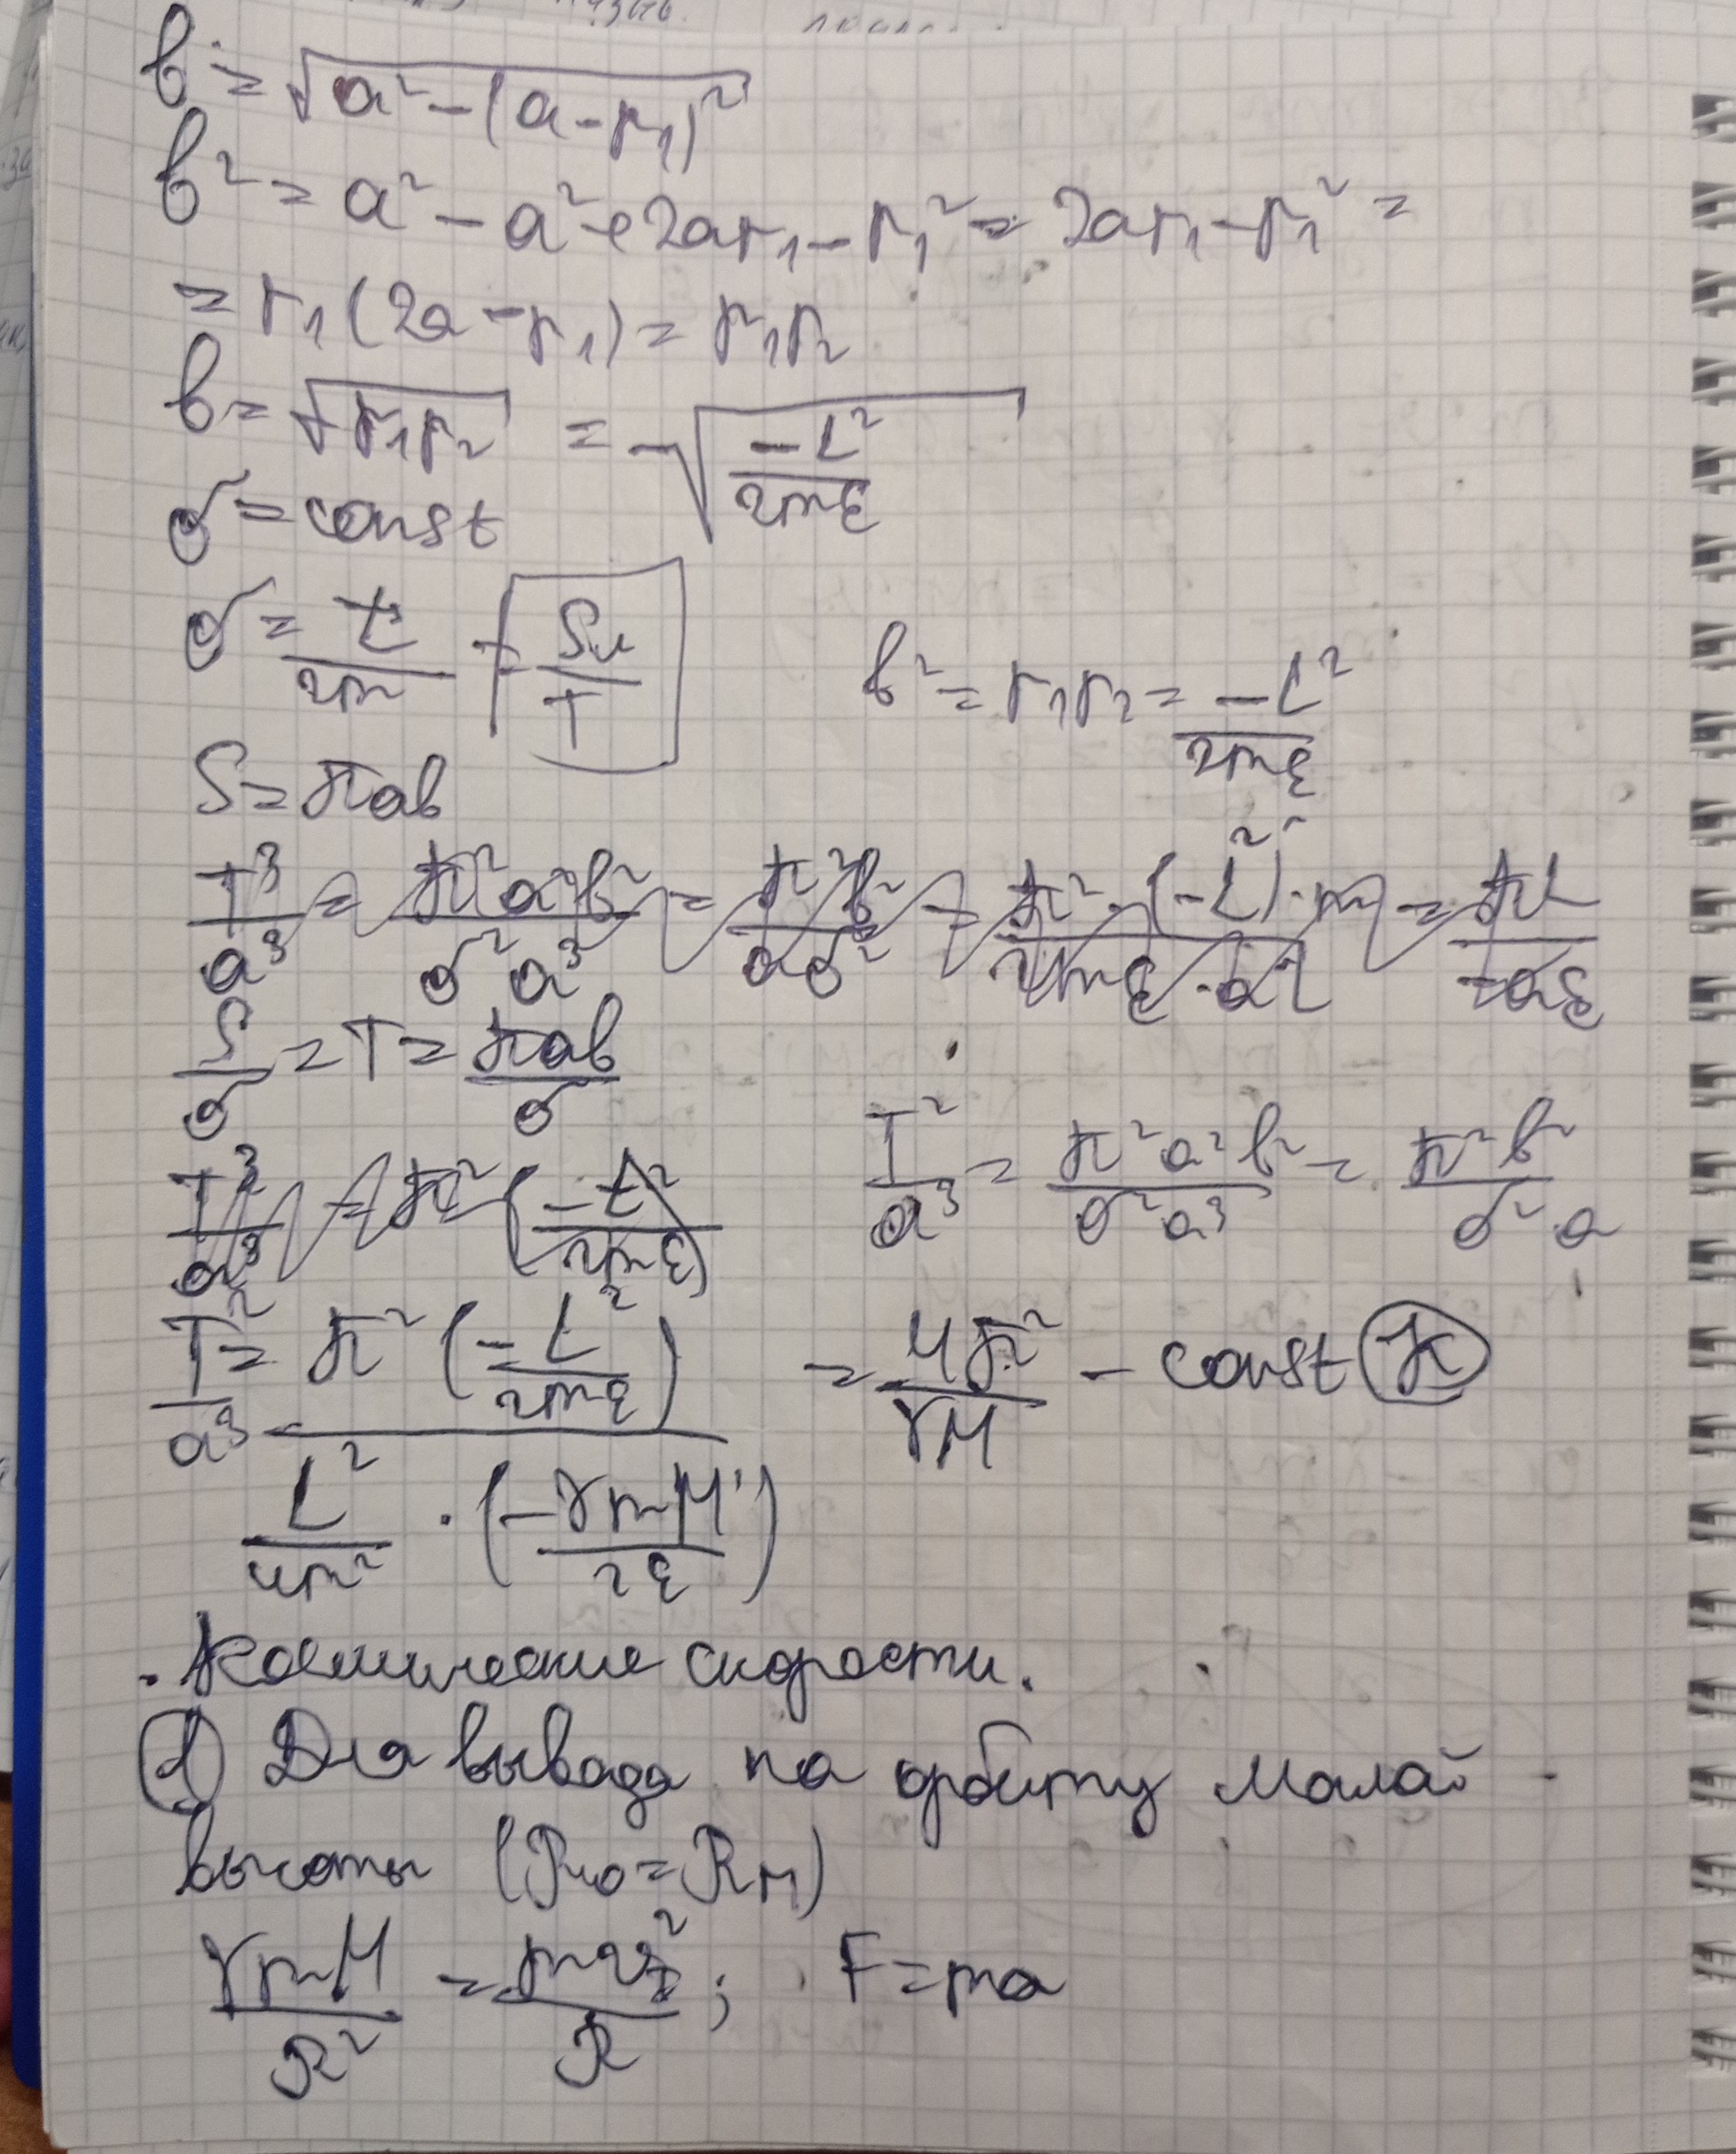 b = √(a² - (a - r₁)²)
b² = a² - a² + 2ar₁ - r₁² = 2ar₁ - r₁² =
= r₁(2a - r₁) = r₁r₂
b = √(r₁r₂) = √(-L²/2mε)
σ = const
σ = L/2m = Sи/T
b² = r₁r₂ = -L²/2mε
S = πab
T³/a³ = π²a²b²/σ²a³ = π²b²/aσ² = π²·(-L²)·m/2mε·aL = πL/-aε
S/σ = T = πab/σ
T²/a³ = π²a²b²/σ²a³ = π²b²/σ²·a
T²/a³ = π²(-L²/2mε)
T²/a³ = π²(-L²/2mε) / (L²/4m² · (-γmM/2ε)) = 4π²/γM - const K
. Космические скорости.
1) Для вывода на орбиту малой
высоты (R₀ = Rм)
γmM/R² = mv₁²/R ; F = ma